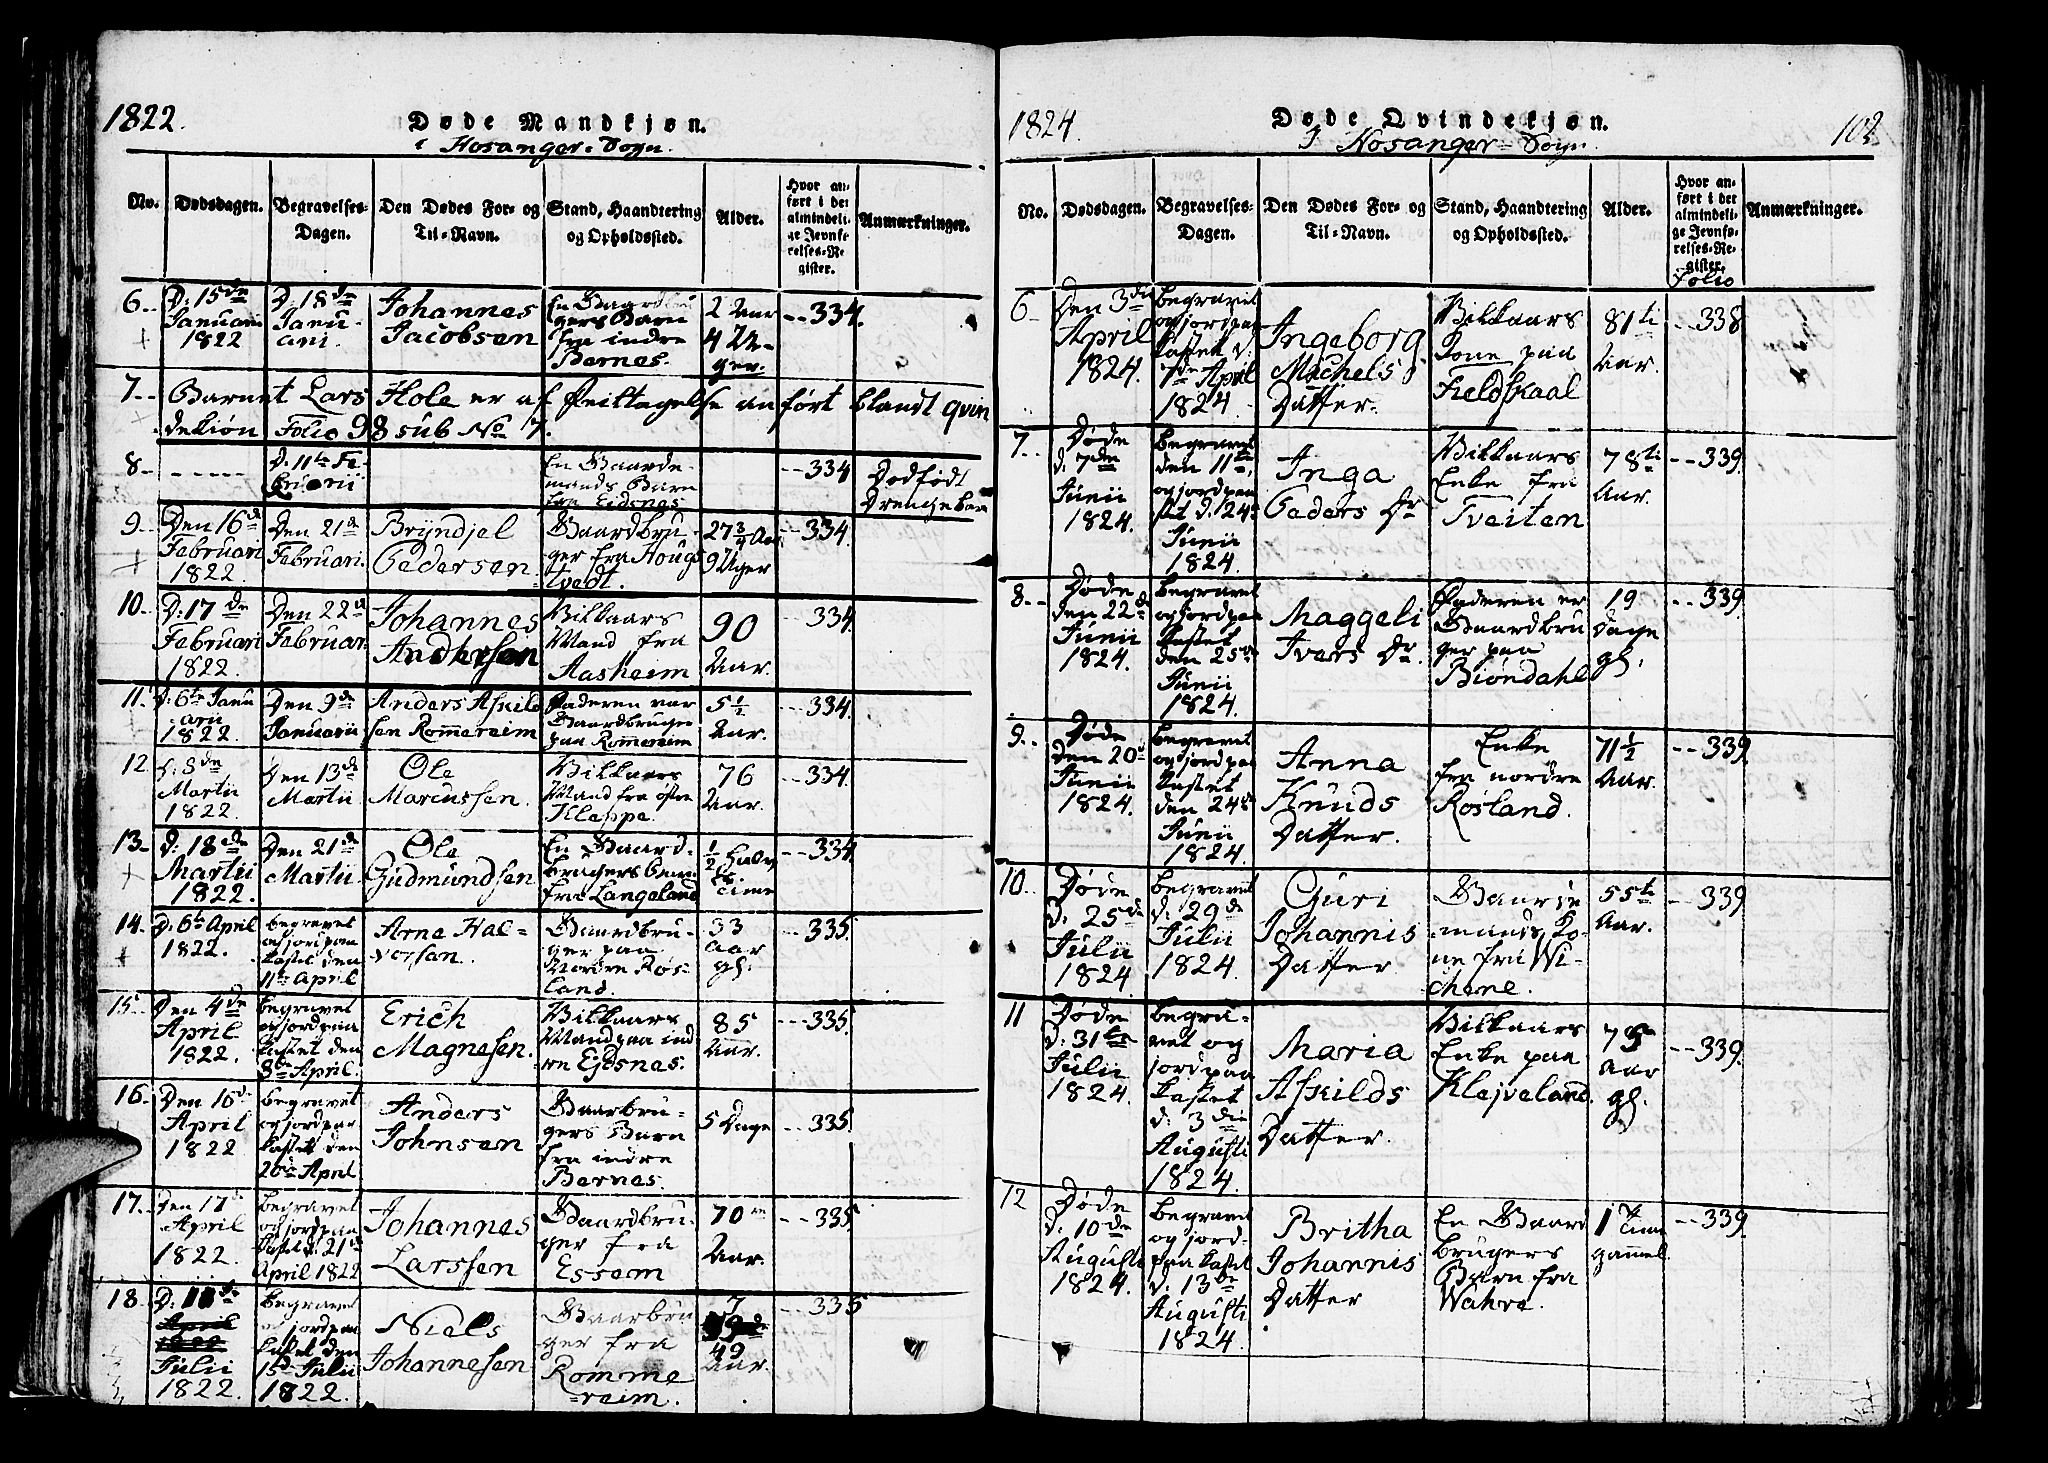 1822.
Døde Mandkjøn.
i Hosanger-Sogn.
No.
Dødsdagen.
Begravelses-
Dagen.
Den Dødes For- og
Til-Navn.
Stand, Haandtering
og Opholdssted.
Alder.
Hvor an-
ført i det
almindeli-
ge Jevnfø-
relses-Re-
gister.
Anmærkninger.
6
D: 15de
Januarii
1822
D: 18de
Janu-
arii.
Johannes
Jacobsen
En Gaardbru
gers Barn
fra indre
Bernes.
2 Aar
4 U-
ger.
334.
7
Barnet Lars Hole er af Feiltagelse anført blandt qvin
dekiøn Folio 98 sub No 7.
8
D: 11te Fe-
bruarii
En Gaarde-
mands Barn
fra Eidsnes
334
Dødfødt
Drengebarn
9
Den 16de
Februari
1822
Den 21de
Februari.
Bryndjel
Pedersen
Gaardbru-
ger fra Houg
tvedt.
27 3/4 Aar
9 Uger
334.
10
D: 17de
Februari
1822
Den 22de
Februari
Johannes
Andersen
Vilkaars
Mand fra
Aasheim
90
Aar.
334.
11.
D: 6te Janu
arii
1822.
Den 9de
Januarii
Anders Askild
sen Rommereim
Faderen var
Gaardbruger
paa Rommereim
5 1/2
Aar.
334.
12
D: 8de
Martii
1822.
Den 13de
Martii
Ole
Marcussen.
Vilkaars
Mand fra østre
Kleppe.
76
Aar.
334.
13
D: 18de
Martii
1822.
Den 21de
Martii.
Ole
Gudmundsen
En Gaard-
brugers Barn
fra Langeland
1/2 halv
Time
334.
14.
D: 6te April
1822.
begravet
og jord paa
kastet den
11te April
Arne Hal-
vorsen.
Gaardbru-
ger paa
Nordre Røs-
land.
33
Aar
gl.
335.
15
Den 4de
April
1822.
begravet
og jord paa
kastet den
8de April.
Erich
Magnesen.
Vilkaars
Mand paa ind
ren Ejdsnes.
85
Aar.
335.
16.
Den 16de
April
1822
begravet
og jord paa
kastet den
20de April
Anders
Johnsen
Gaarbru-
gers Barn
fra indre
Bernes.
5 Dage
335.
17.
Den 17de
April
1822.
begravet
og jord paa
kastet d: 21de
April 1822
Johannes
Larssen
Gaardbru-
ger fra
Essem
70
Aar.
335
18.
D: 11de
April
1822
Julii
1822.
begravet
og jord paa
kastet den
15de Julii
1822.
Niels
Johannesen
Gaarbru
ger fra
Romme
-reim.
49
Aar.
335
1824.
Døde Qvindekjøn.
I Hosanger-Sogn.
102
No.
Dødsdagen.
Begravelses-
Dagen.
Den Dødes For- og
Til-Navn.
Stand, Haandtering
og Opholdssted.
Alder.
Hvor an-
ført i det
almindeli-
ge Jevnfø-
relses-Re-
gister.
Folio
Anmærkninger.
6
Den 3die
April
1824.
begravet
og jord paa
kastet d:
7de April
1824.
Ingeborg
Michels
Datter.
Vilkaars
Kone paa
Fieldskaal
81ti
Aar.
338
7
Døde
d: 7de
Junii
1824.
begravet
den 11te,
og jord paa
kast d. 24de
Junii
1824.
Inga
Peders Dr
Vilkaars
Enke fra
Tveiten
78ti
Aar.
339.
8
Døde
den 22de
Junii
1824.
begravet
og jord paa
kastet
den 25de
Junii
1824.
Maggeli
Ivers Dr.
Faderen er
Gaardbru
ger paa
Biøndahl
19
Dage
gl.
339.
9
Døde
den 20de
Junii
1824.
begravet
og jord paa
kastet
den 24de
Junii
1824.
Anna
Knuds
Datter.
Enke
fra nordre
Røsland.
71 1/2
Aar.
339.
10.
Døde
d: 25de
Julii
1824
begravet
d: 29de
Julii
1824.
Guri
Johannis
Datter
Gaarde
mands Ko-
ne fra Wi-
chene.
55te
Aar.
339
11
Døde
d: 31te
Julii
1824.
begra-
vet og
jord paa
kastet
d: 3die
Augusti
1824.
Maria
Askilds
Datter.
Vilkaars
Enke paa
Klejveland.
75
Aar
gl.
339.
12
Døde
d: 10de
Augusti
1824.
begravet
og jord-
paa kastet
d: 13de
Augusti
1824.
Britha
Johannis
Datter
En Gaard
brugers
Barn fra
Wahre.
1 Time
gammel.
339.